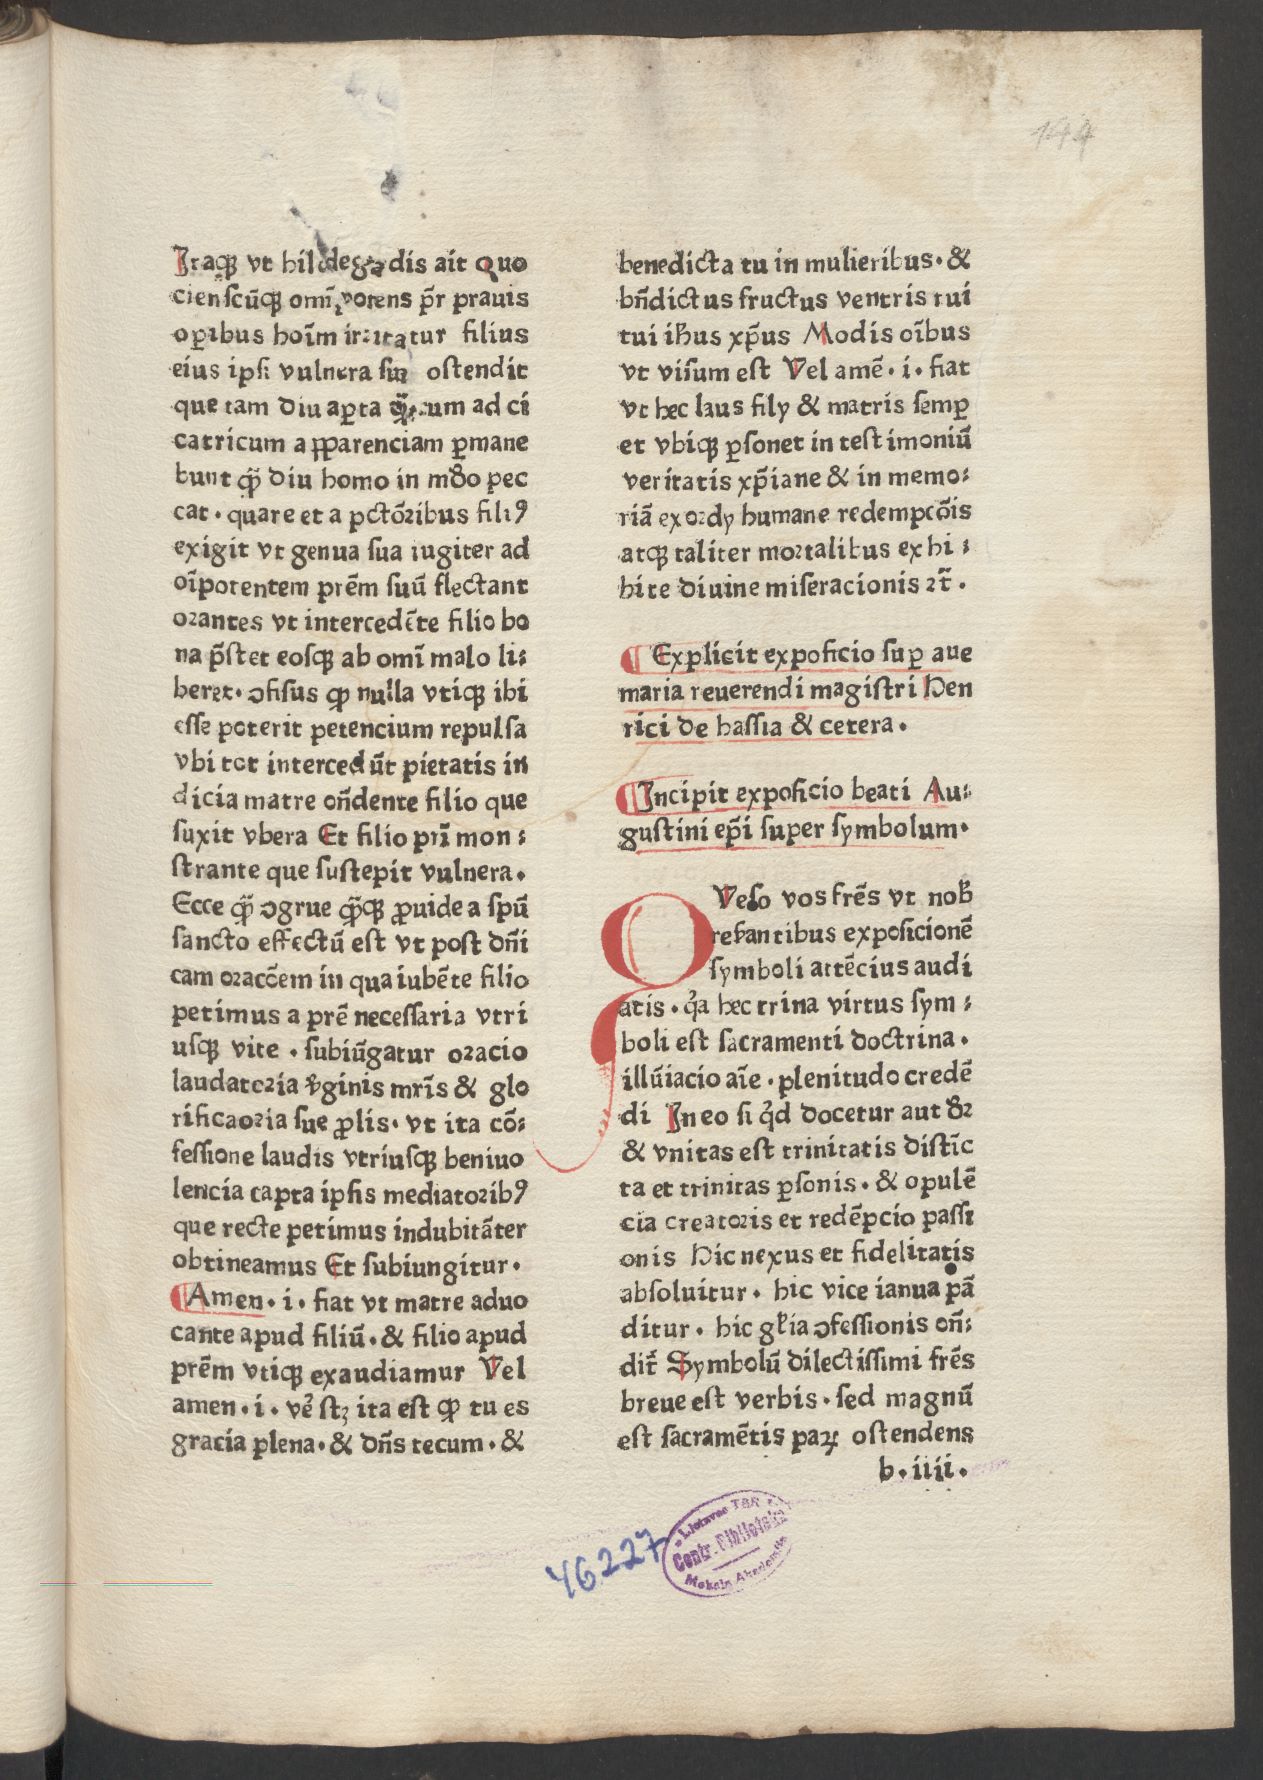 144
Itaqꝫ vt hildegadis ait Quo
ciensCũqꝫ omĩpotens pr̃ prauis
oꝑibus hoĩm irritatur filius
eius ipsi vulnera sua ostendit
que tam diu aꝑta cum ad ci
catricum apparenciam ꝑmane
bunt qꝫ̃ diu homo in mũdo pec
cat · quare et a pctõribus filiꝰ
exigit vt genua sua iugiter ad
oĩpotentem prẽm suũ flectant
orantes vt intercedẽte filio bo
na p̃stet eosqꝫ ab omĩ malo li⸗
beret · ꝯfisus ꝙ nulla vtiqꝫ ibi
esse poterit petencium repulsa
vbi tot intercedũt pietatis in
dicia matre oñdente filio que
suxit vbera Et filio prĩ mon⸗
strante que sustepit vulnera ·
Ecce qꝫ̃ ꝯgrue qꝫ̃qꝫ ꝓuide a spũ
sancto effectũ est vt post dñi
cam oracõem in qua iubẽte filio
petimus a prẽ necessaria vtri
usqꝫ vite · subiũgatur oracio
laudatoria v̓ginis mr̃is & glo
rificaoria sue ꝓlis · vt ita cõ⸗
fessione laudis vtriusqꝫ beniuo
lencia capta ipsis mediatoribꝰ
que recte petimus indubitãter
obtineamus Et subiungitur ·
¶ Amen · i · fiat vt matre aduo
cante apud filiũ · & filio apud
prẽm vtiqꝫ exaudiamur Vel
amen · i · ve᷑ stꝫ ita est ꝙ tu es
gracia plena · & dñs tecum · &
benedicta tu in mulieribus · &
bñdictus fructus ventris tui
tui ih̃us xp̃us Modis oĩbus
vt visum est Vel amẽ · i · fiat
vt hec laus fily & matris semꝑ
et vbiqꝫ ꝑsonet in testimoniũ
veritatis xp̃iane & in memo⸗
riã exordy humane redempcõis
atqꝫ taliter mortalibus exhi⸗
bite diuine miseracionis ꝛt̃ ·
¶ Explicit exposicio suꝑ aue
maria reuerendi magistri Hen
rici de hassia & cetera ·
¶ Incipit exposicio beati Au⸗
gustini ep̃i super symbolum ·
QVeso vos frẽs vt nob̃
reẜantibus exposicionẽ
symboli attẽcius audi
atis · q̓a hec trina virtus sym⸗
boli est sacramenti doctrina ·
illũiacio aĩe · plenitudo credẽ
di In eo si q̓d docetur aut dꝛ
& vnitas est trinitatis distĩc
ta et trinitas ꝑsonis · & opulẽ
cia creatoris et redẽpcio passi
onis Hic nexus et fidelitatis
absoluitur · hic vice ianua pã
ditur · hic gl̃ia ꝯfessionis oñ⸗
dit̃ Symbolũ dilectissimi frẽs
breue est verbis · sed magnũ
est sacramẽtis paꝝ ostendens
b · iiii ·
46227
Lietuvos TSR
Centr. Biblioteka
Mokslų Akademijos